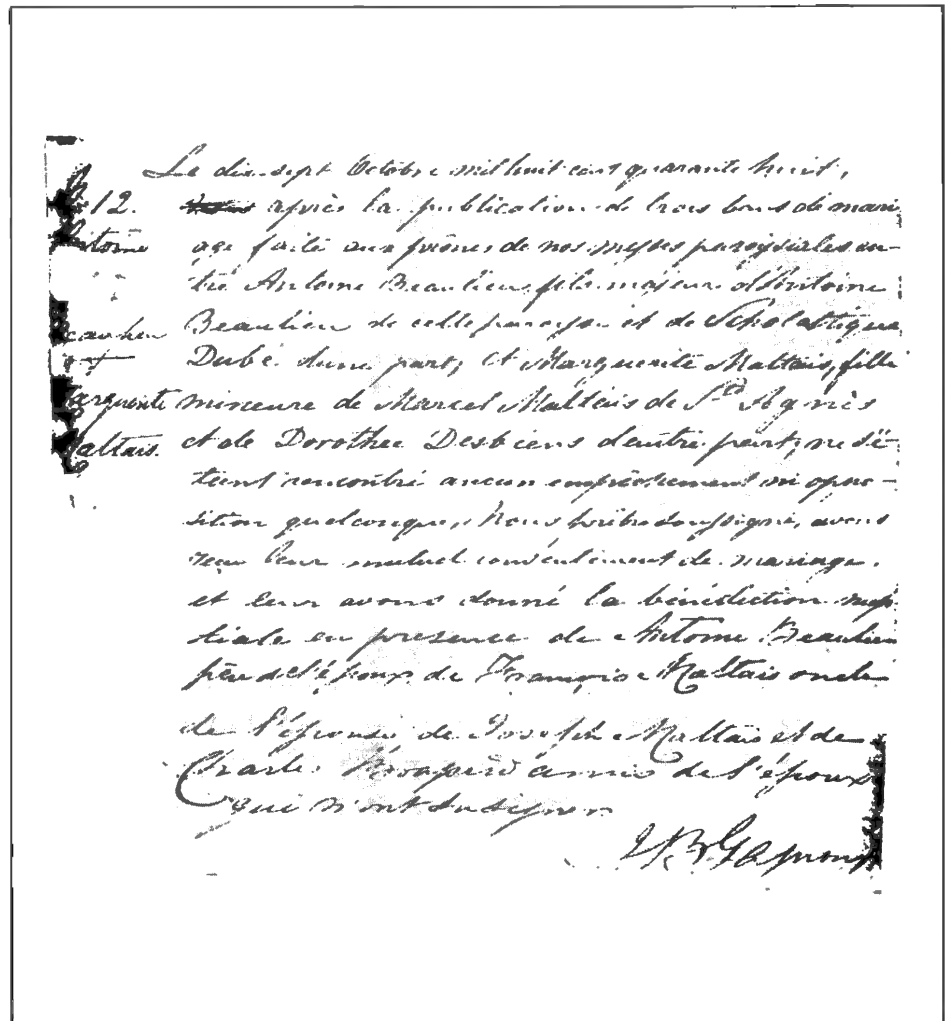 Le dix-sept Octobre mil huit cent quarante huit,
M 12. après la publication de trois bans de mari
Antoine age faite aux prônes de nos messes paroissiales en-
tre Antoine Beaulieu, fils majeure d'Antoine
Beaulieu Beaulieu de cette paroisse et de Scholastique
et Dubé d'une part, et Marguerite Maltais, fille
Marguerite mineure de Marcel Maltais de Ste Agnès
Maltais. et de Dorothée Desbiens d'autre part, ne s'é-
tant rencontré aucun empêchement ni opno-
sition quelconque, Nous prêtre soussigné, avons
reçu leur mutuel consentement de mariage.
et leur avons donné la bénédiction nup
tiale en presence de Antoine Beaulieu
père de l'époux, de François Maltais oncle
de l'épouse de Joseph Maltais et de
Charles amis de l'époux
qui n'ont su signer
J B Gagnon